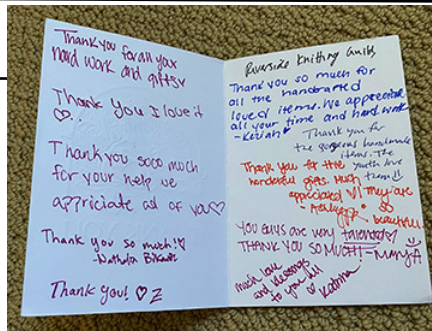 Thank you for all your
hard work and gifts
Thank You I love it
♡..
Thank you sooo much
for your help we
appriciate all of you♡
Thank you so much!♡
- Nathalia
Thank you! ♡ Z
Riverside Knitting Guild,
Thank you so much for
all the handcrafted
loved items. We appreciate
all your time and hard work
- Keziah
Thank you for
the gorgeous handmade
items. The
youth love
them!!
Thank you for the
wonderful gifts. Much
appreciated ♡! They are
so
beautiful
YOU GUYS are very talented♡
THANK YOU SO MUCH!! - MANYA
much love
and blessings
to you all
♡ Katrina